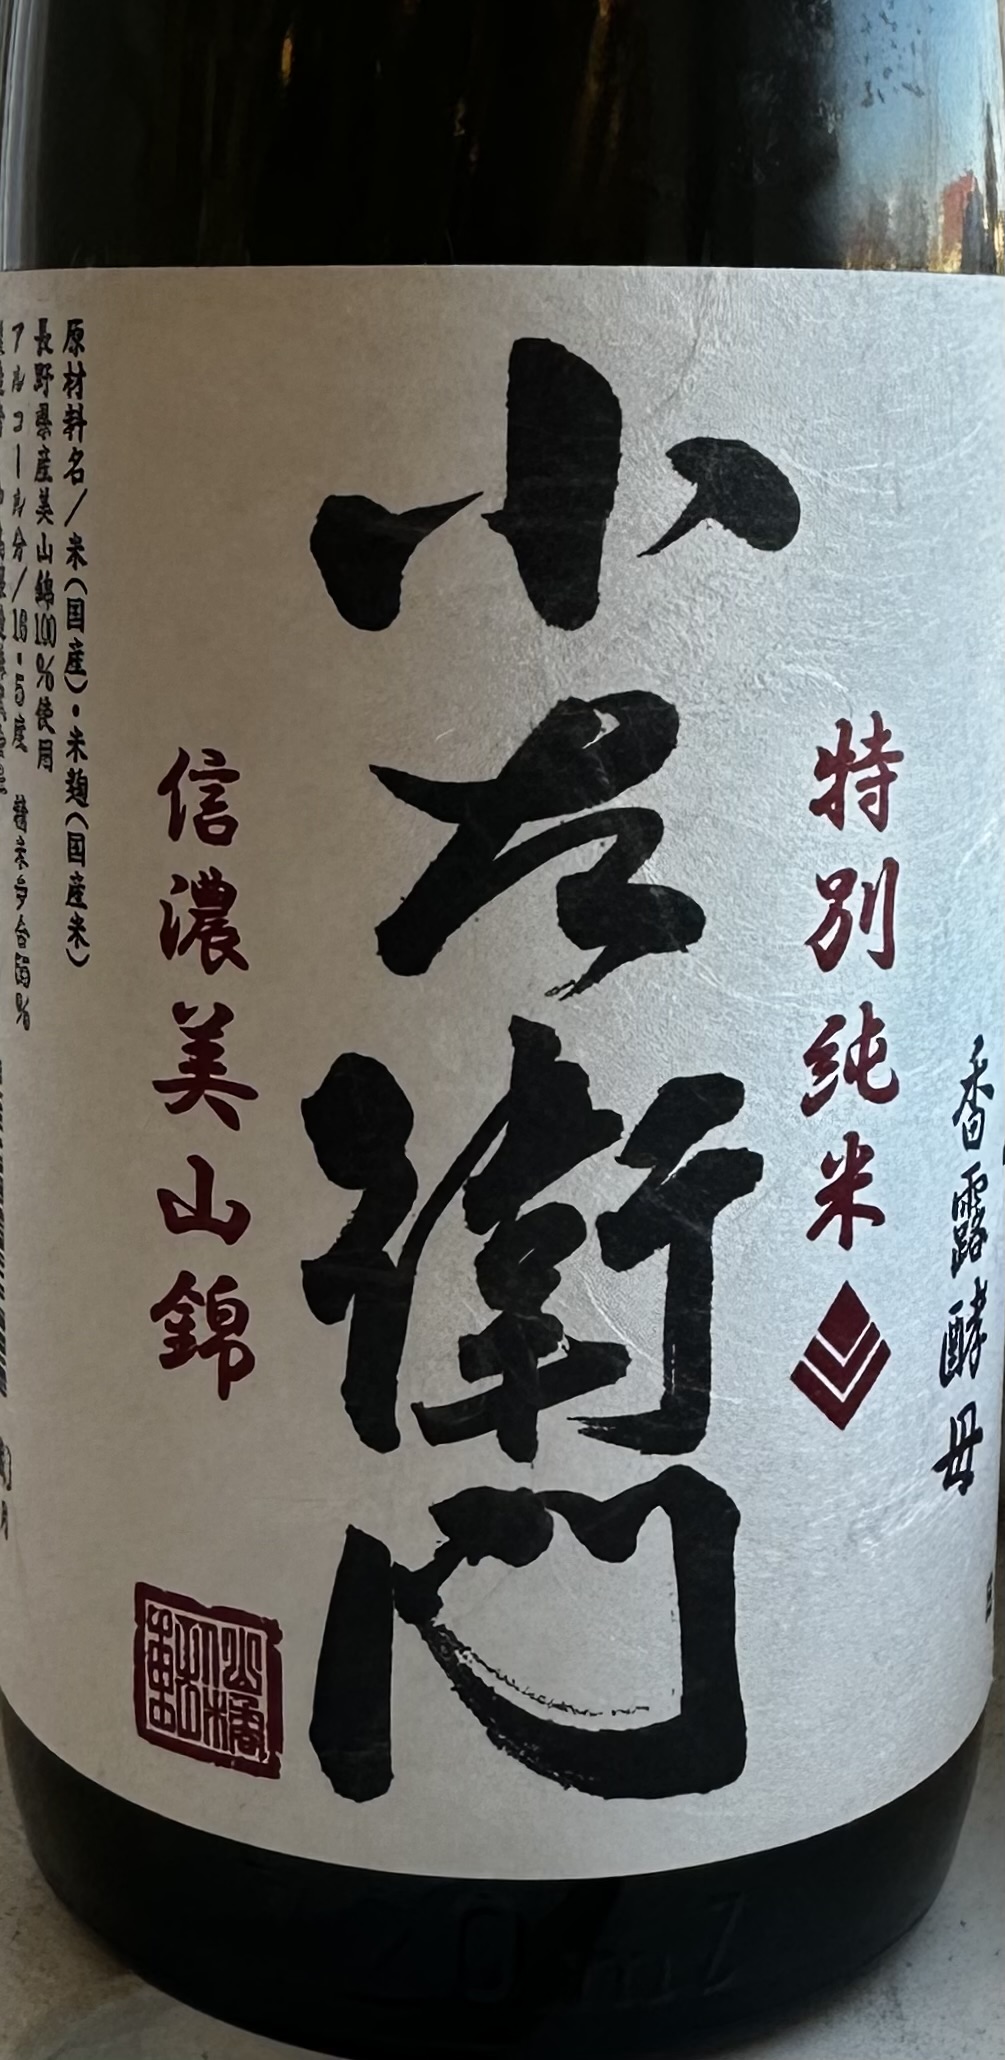 香露酵母
特別純米
小左衛門
信濃美山錦
原材料名/米(国産)・米麹(国産米)
長野県産美山錦100%使用
アルコール分/16.5度 精米歩合55%